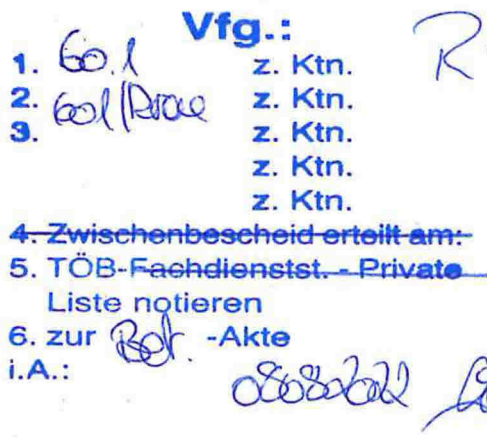 Vfg.:
R
1. 60.1 z. Ktn.
2. z. Ktn.
3. z. Ktn.
z. Ktn.
z. Ktn.
4. Zwischenbescheid erteilt am:
5. TÖB-Fachdienstst. - Private
Liste notieren
6. zur Bet. -Akte
i.A.: 08082022